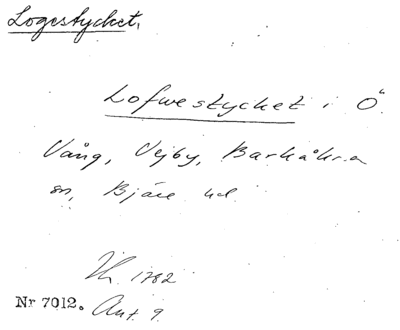 Logestycket.
Lofwestycket i Ö.
Vång, Vejby, Barkåkra
sn, Bjäre hd.
1782
Nr 7012. Ant. 9.